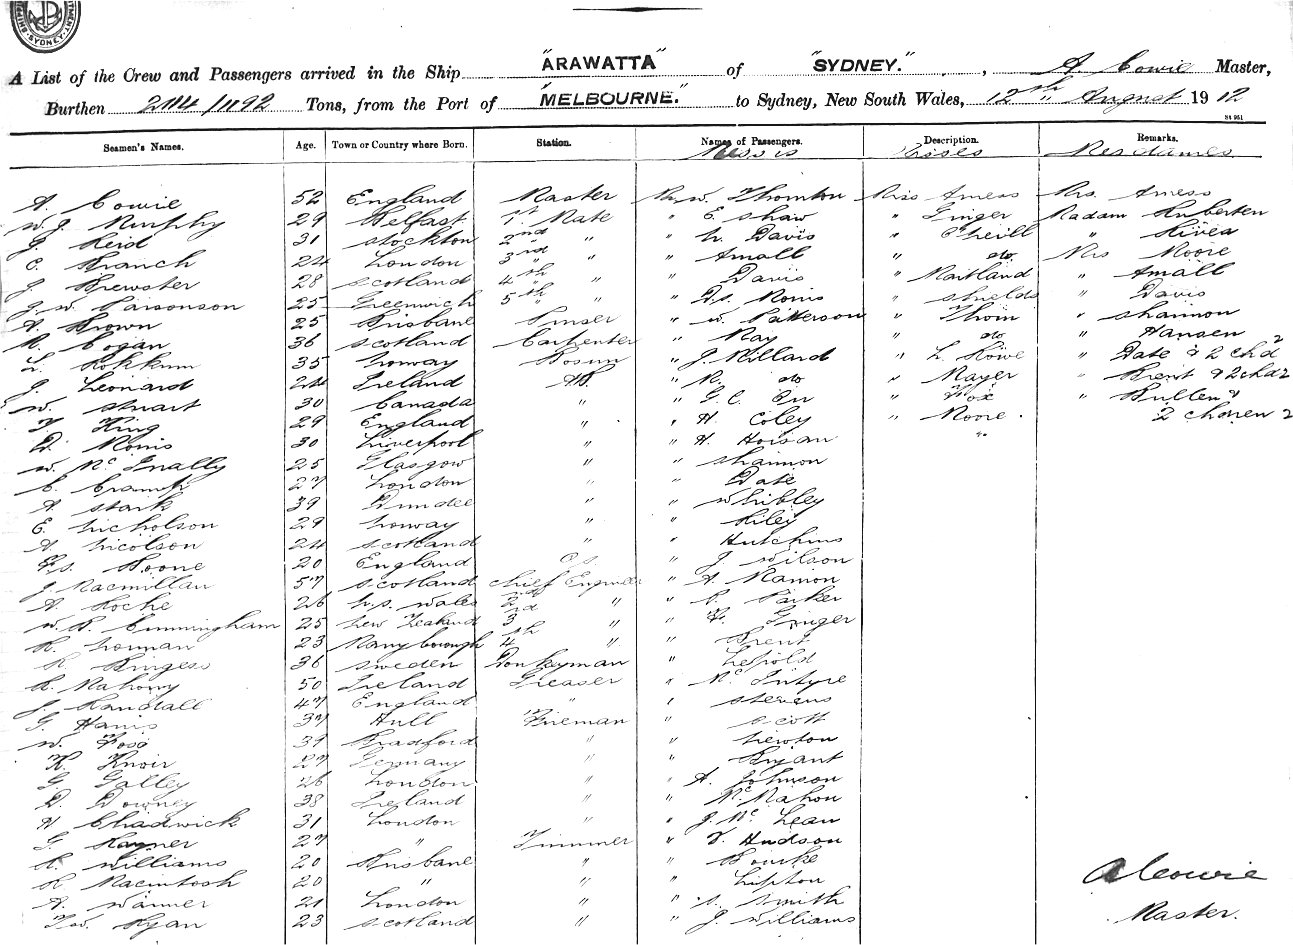 SYDNEY
A List of the Crew and Passengers arrived in the Ship "ARAWATTA" of "SYDNEY.", A. Cowie Master,
Burthen 2114/1192 Tons, from the Port of "MELBOURNE." to Sydney, New South Wales, 12th August 1912
St 951
Seamen's Names. Age. Town or Country where Born. Station. Names of Passengers. Description. Remarks.
Messrs Misses Mesdames
A. Cowie 52 England Master Mr W. Thornton Miss Amess Mrs. Amess
W. J. Murphy 29 Belfast 1st Mate " E. Shaw " Ginger Madam Hubertien
J. Reid 31 Stockton 2nd " " W. Davis " O'Neill "
C. Branch 24 London 3rd " " Amall " do Mrs Moore
J. Brewster 28 Scotland 4th " " Davis " Maitland " Amall
J. W. Parsonson 25 Greenwich 5th " " D. S. Morris " Shields " Davis
A. Brown 25 Brisbane Purser " W. Patterson " Thom " Shannon
R. Cogan 36 Scotland Carpenter " Ray " do " Hansen
L. Rokkum 35 Norway Bosun " J. Millard " L. Rowe " Date & 2 chd
J. Leonard 24 Ireland AB " R. do " Mayer " Brent & 2 chd
W. Stuart 30 Canada " " G. C. Orr " Fox " Bullen &
T. King 29 England " " H. Coley " Moore. 2 children
D. Morris 30 Liverpool " " H.
W. McInally 25 Glasgow " " Shannon
C. 27 London " " Date
A. Stark 39 Dundee " " Whibley
E. Nicholson 29 Norway " " Riley
A. Nicolson 24 Scotland " " Hutchins
Hoone 20 England O.S. " J. Wilson
J. Macmillan 57 Scotland Chief Engineer " A. Marion
A. Roche 26 N.S. Wales 2nd " " Parker
W. R. Cunningham 25 New Zealand 3rd " " F. Ginger
R. Norman 23 Maryborough 4th " " Brent
R. Burgess 36 Sweden Donkeyman " Lepold
R. Mahony 50 Ireland Greaser " McIntyre
J. Randall 47 England " " Stevens
G. Harris 37 Hull Fireman " Scott
W. Rose 39 Bradford " " Newton
K. Knoir 27 Germany " " Bryant
G. Galley 26 London " " A. Johnson
D. Downey 38 Ireland " " McMahon
H. Chadwick 31 London " " J. McLean
G. Rayner 27 " Trimmer " T. Hudson
R. Williams 20 Brisbane " " Bourke
R. Macintosh 20 " " " Lipton
A. Warner 21 London " " S. Smith
T. W. Ryan 23 Scotland " " J. Williams
A Cowie
Master.